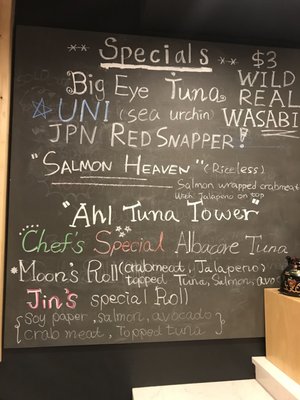 Specials
$3
WILD
REAL
WASABI
Big Eye Tuna
UNI (sea urchin)
JPN RED SNAPPER!
"SALMON HEAVEN" (Riceless)
Salmon wrapped crabmeat
With Jalapeno on top
"Ah! Tuna Tower"
Chef's Special Albacore Tuna
*Moon's Roll (crabmeat, Jalapeno
topped Tuna, Salmon, avoc
Jin's special Roll
{Soy paper, salmon, avocado
crab meat, Topped tuna}